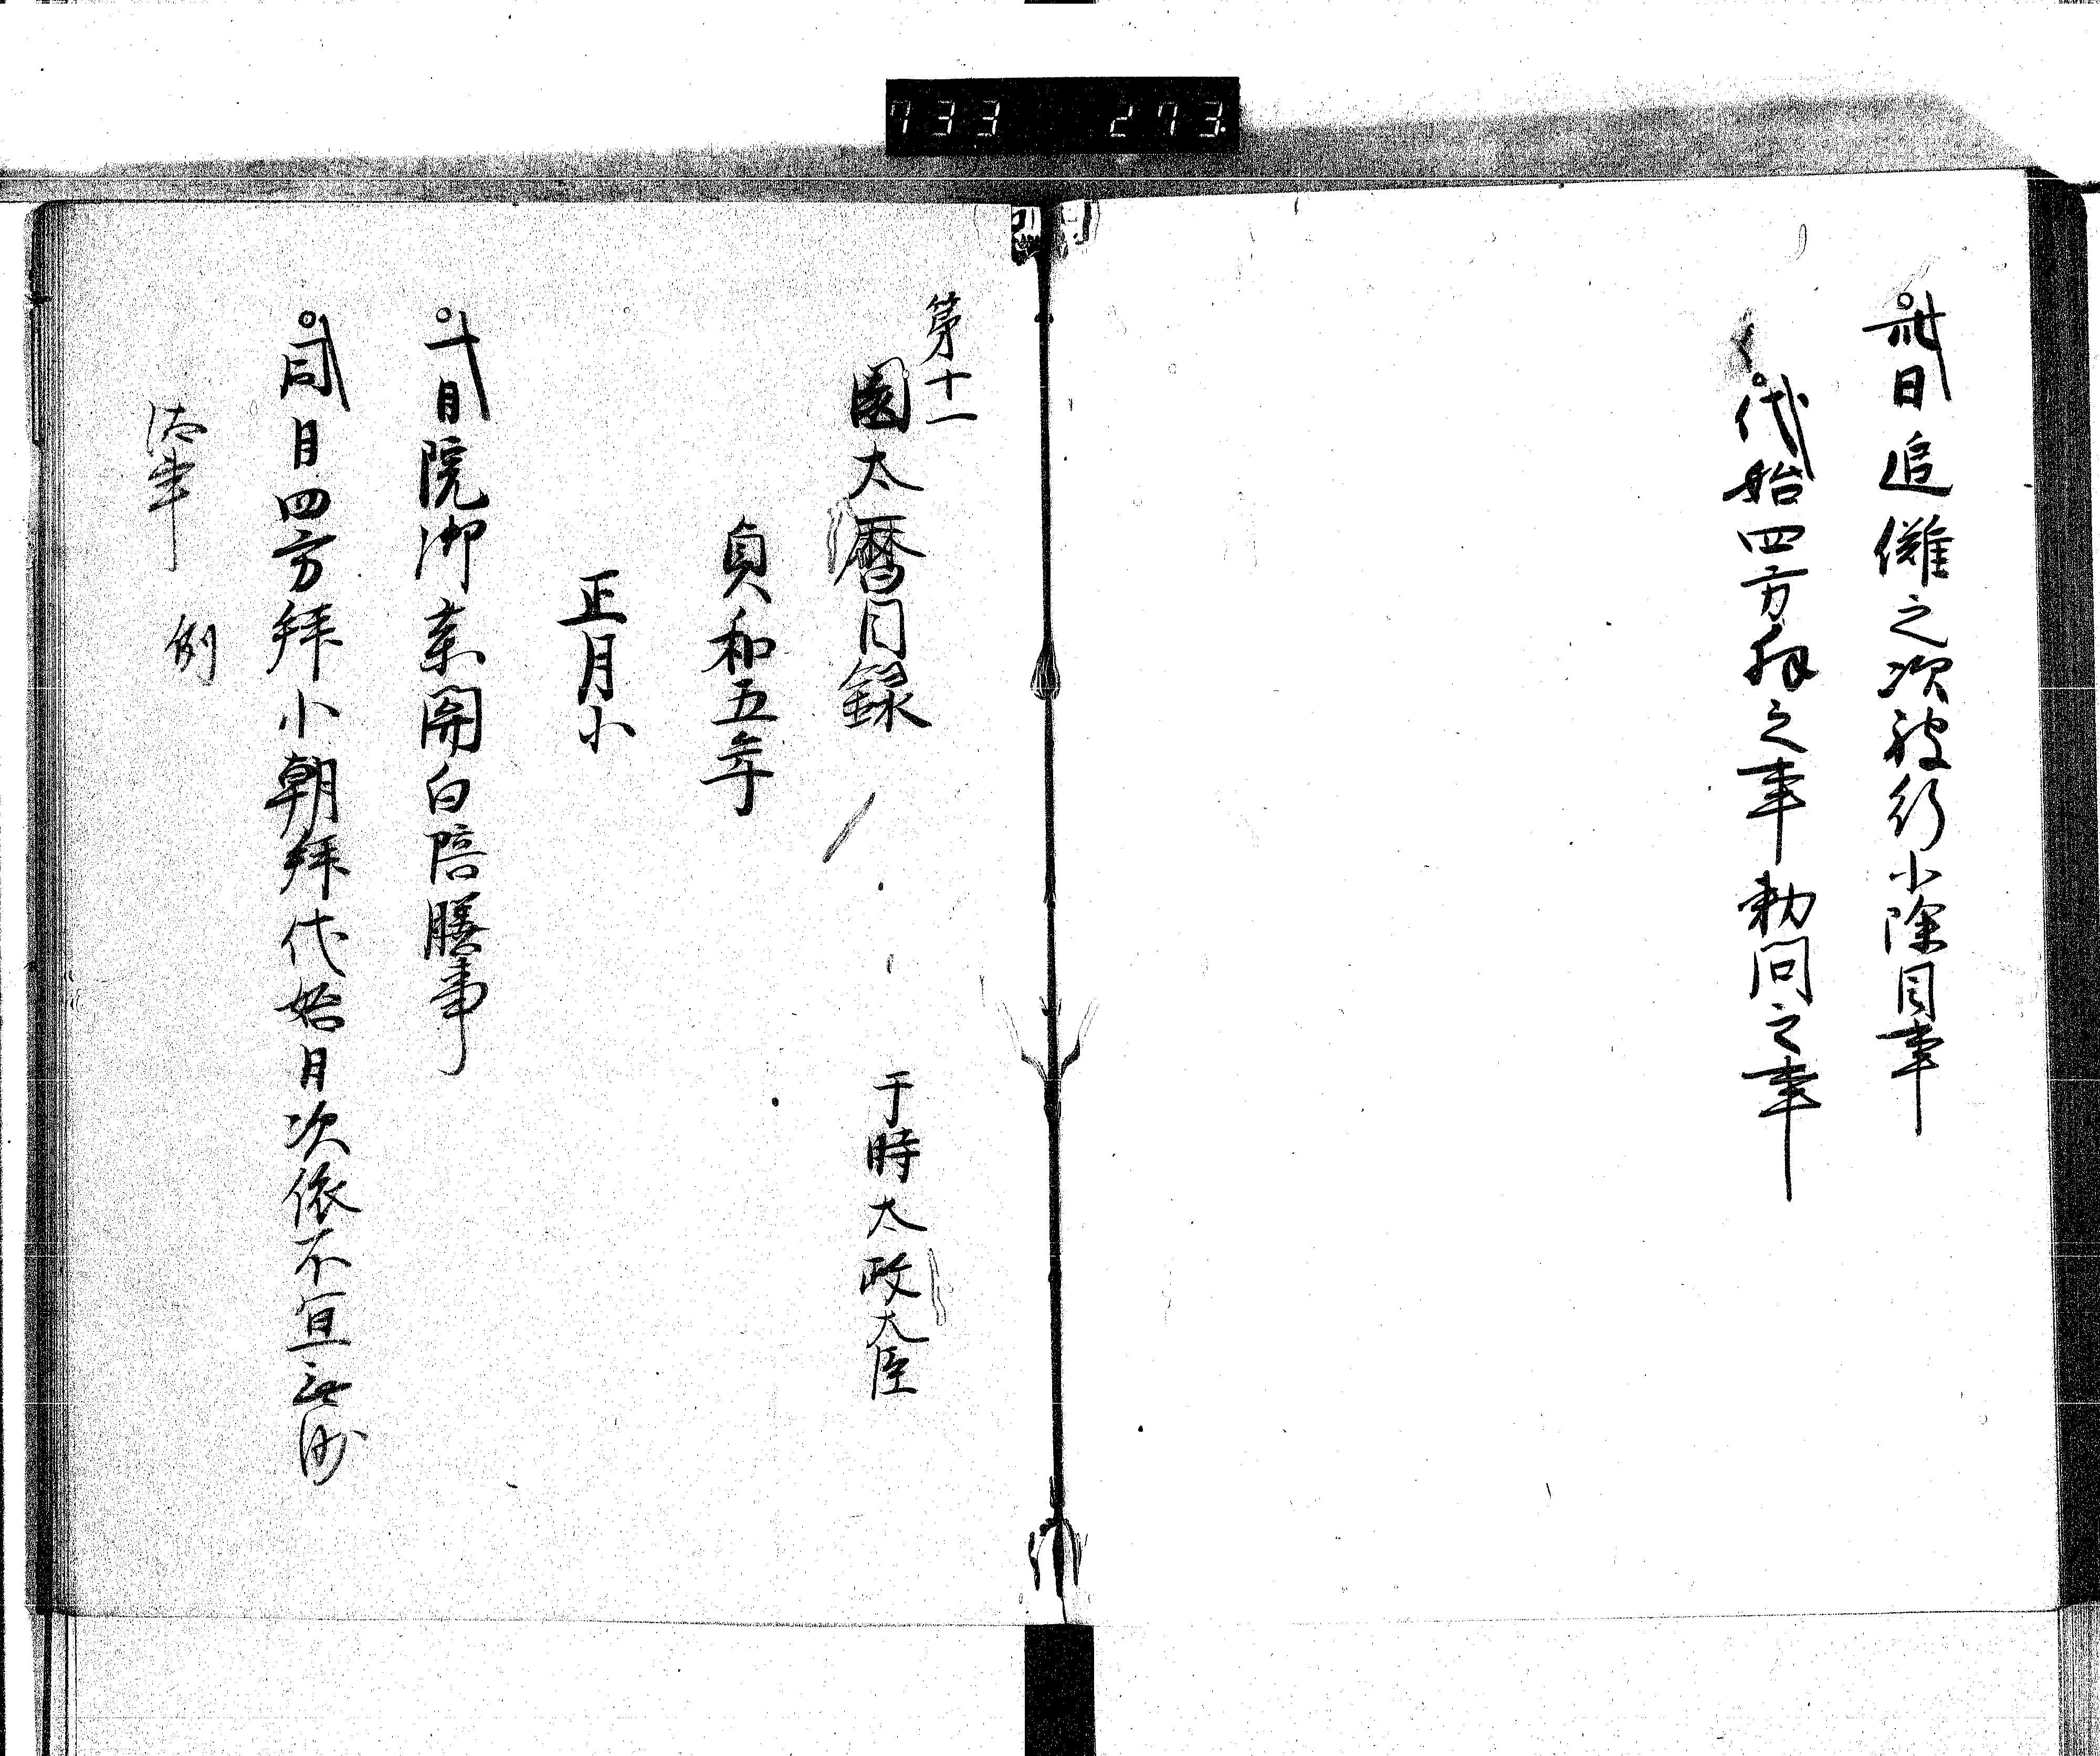 733 273
卅日追儺之次被行小除目事
代始四方拜之事勅問之事
第十一
園太暦目録 于時太政大臣
貞和五年
正月小
一日院御薬関白陪膳事
同日四方拜小朝拜代始月次依不宜
事 例